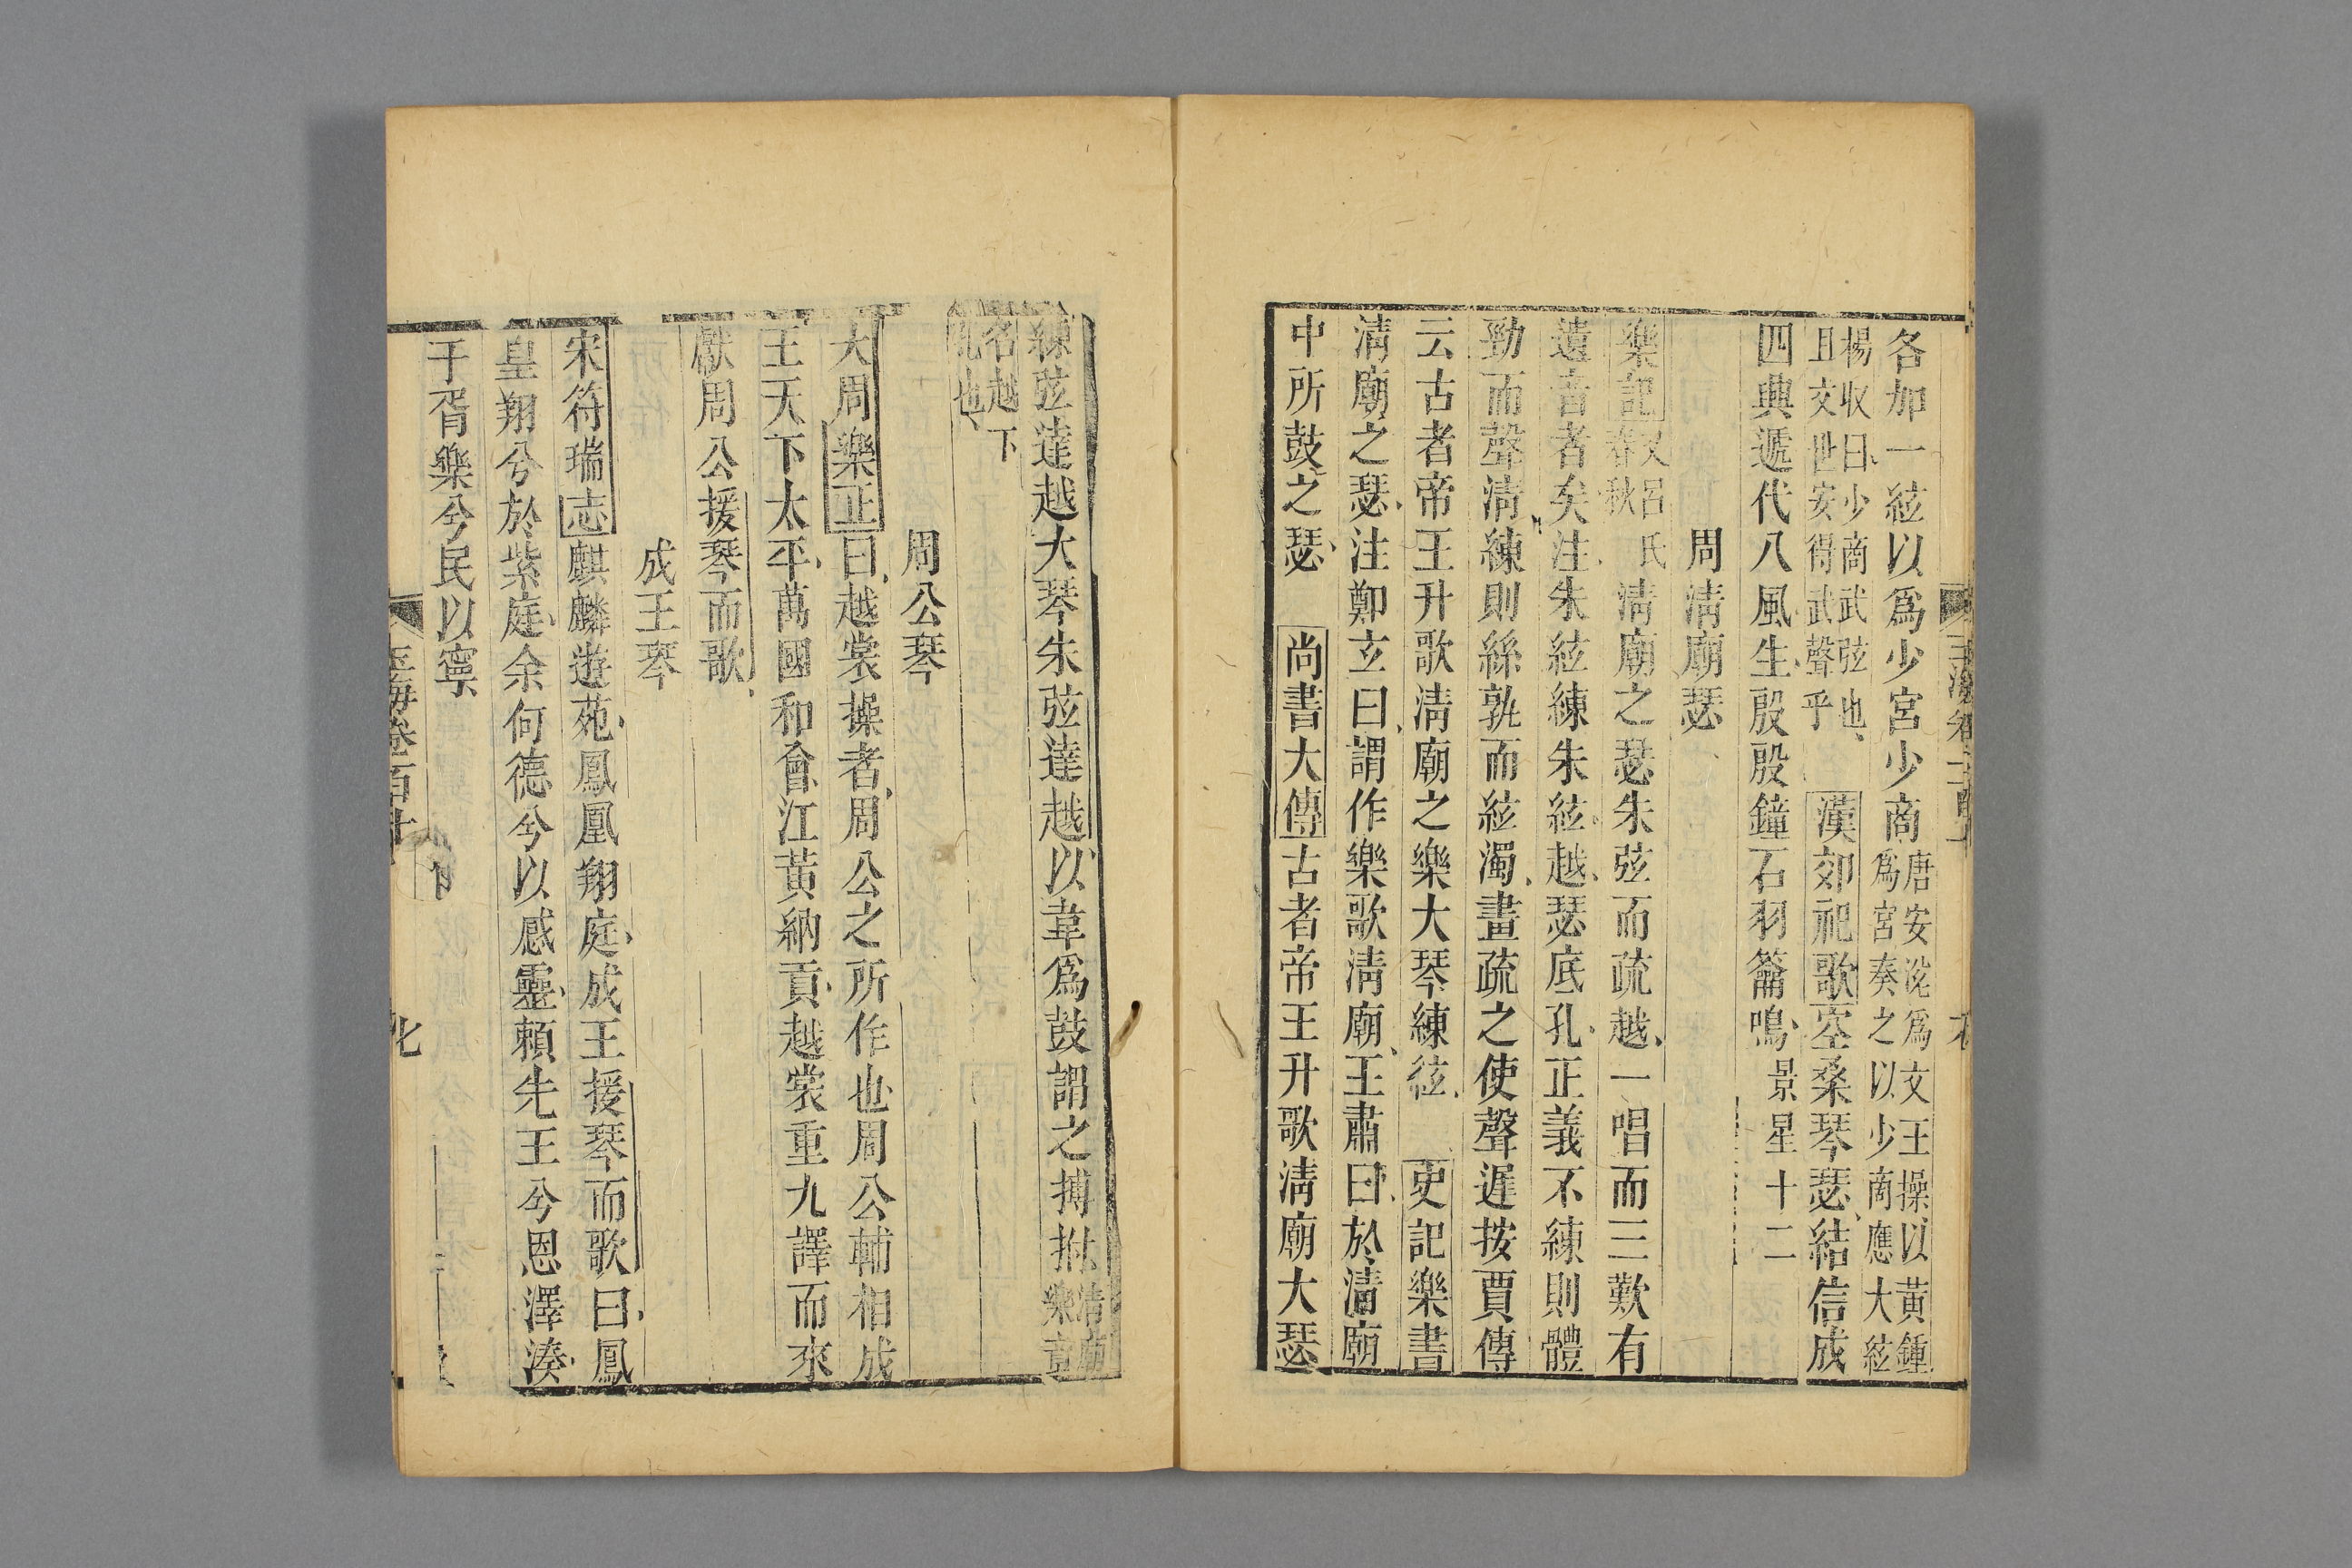 各加一絃以爲少宮少商唐安㳸爲文王操以黃鍾
爲宮奏之以少商應大絃
楊收曰少商武弦也
且文世安得武聲乎漢郊祀歌空桑琴瑟結信成
四興遞代八風生殷殷鐘石羽籥鳴景星十二
周淸廟瑟
樂記又呂氏
春秋淸廟之瑟朱弦而疏越一唱而三歎有
遺音者矣注朱絃練朱絃越瑟底孔正義不練則體
勁而聲淸練則絲孰而絃濁畫疏之使聲遲按賈傳
云古者帝王升歌淸廟之樂大琴練絃史記樂書
淸廟之瑟注鄭玄曰謂作樂歌淸廟王肅曰於淸廟
中所鼓之瑟尚書大傳古者帝王升歌淸廟大瑟
練弦達越大琴朱弦達越以韋爲鼓謂之搏拊淸廟
樂章
名越下
孔也
周公琴
大周樂正曰越裳操者周公之所作也周公輔相成
王天下太平萬國和會江黃納貢越裳重九譯而來
獻周公援琴而歌
成王琴
宋符瑞志麒麟遊苑鳳凰翔庭成王援琴而歌曰鳳
皇翔兮於紫庭余何德兮以感靈賴先王兮恩澤湊
于胥樂兮民以寧
玉海卷百十